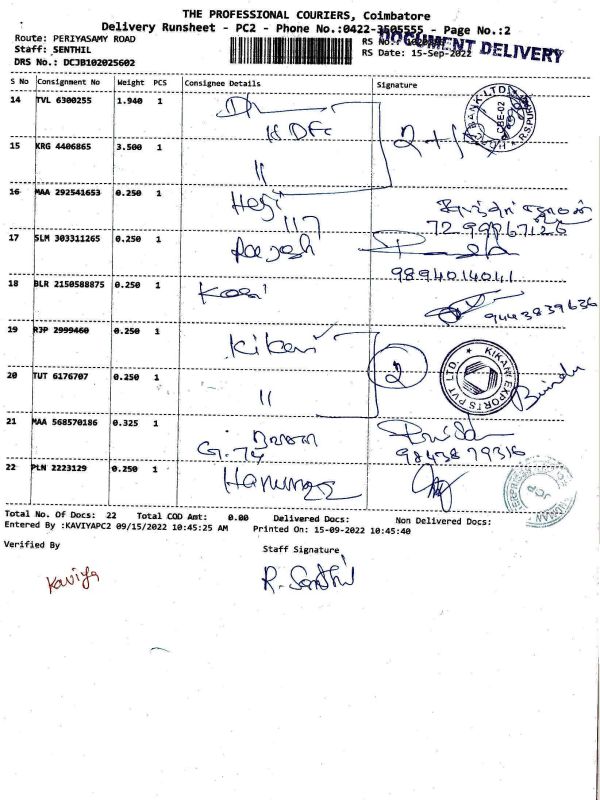 THE PROFESSIONAL COURIERS, Coimbatore
Delivery Runsheet - PC2 - Phone No.:0422-3505555 - Page No.:2
Route: PERIYASAMY ROAD
RS No.:
DOCUMENT DELIVERY
Staff: SENTHIL
RS Date: 15-Sep-2022
DRS No.: DCJB102025602
S No Consignment No Weight PCS Consignee Details Signature
14 TVL 6300255 1.940 1
HDFC
BANK LTD.
CBE-02
R.S.PUR
2+1
15 KRG 4406865 3.500 1 "
16 MAA 292541653 0.250 1
117
17 SLM 303311265 0.250 1 Rajesh
9894014041
18 BLR 2150588875 0.250 1
9443839636
19 RJP 2999460 0.250 1
2
KIKANI EXPORTS PVT LTD.
20 TUT 6176707 0.250 1 "
21 MAA 568570186 0.325 1
9843879316
22 PLN 2223129 0.250 1
JCP
Total No. Of Docs: 22 Total COD Amt: 0.00 Delivered Docs: Non Delivered Docs:
Entered By :KAVIYAPC2 09/15/2022 10:45:25 AM Printed On: 15-09-2022 10:45:40
Verified By Staff Signature
Kaviya
R. Senthil